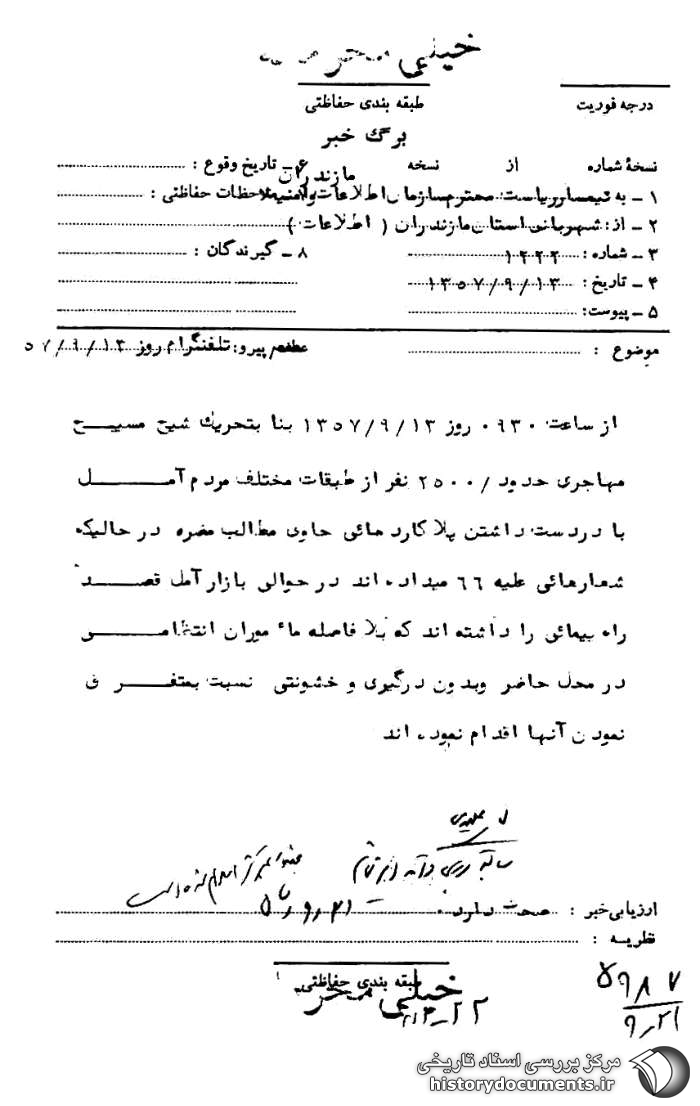 خیلی محرمانه
طبقه بندی حفاظتی
درجه فوریت
برگ خبر
نسخهٔ شماره از نسخه
۶ـ تاریخ وقوع :
مازندران
۱ ـ به تیمسار ریاست محترم سازمان اطلاعات و امنیت
ملاحظات حفاظتی :
۲ ـ از: شهربانی استان مازندران ( اطلاعات )
۳ ـ شماره : ۱۲۲۲
۸ ـ گیرندگان :
۴ ـ تاریخ: ۱۳۵۷/۹/۱۳
۵ ـ پیوست:
موضوع :
عطف پیرو: تلفنگرام روز ۵۷/۹/۱۳
از ساعت ۰۹۳۰ روز ۱۳۵۷/۹/۱۳ بنا بتحریك شیخ مسیح
مهاجری حدود /۲۵۰۰ نفر از طبقات مختلف مردم آمل
با در دست داشتن پلاکارد هائی حاوی مطالب مضره در حالیکه
شعارهائی علیه ۶۶ میداده اند در حوالی بازار آمل قصد
راه پیمائی را داشته اند که بلا فاصله ماء موران انتظامی
در محل حاضر وبدون درگیری و خشونتی نسبت بمتفرق
نمودن آنها اقدام نموده اند
ارزیابی خبر : صحت دارد.
نظریه :
طبقه بندی حفاظتی
خیلی محرمانه
۲۲ـ
۵۹۸۷
۹ـ۲۱
مرکز بررسی اسناد تاریخی
historydocuments.ir